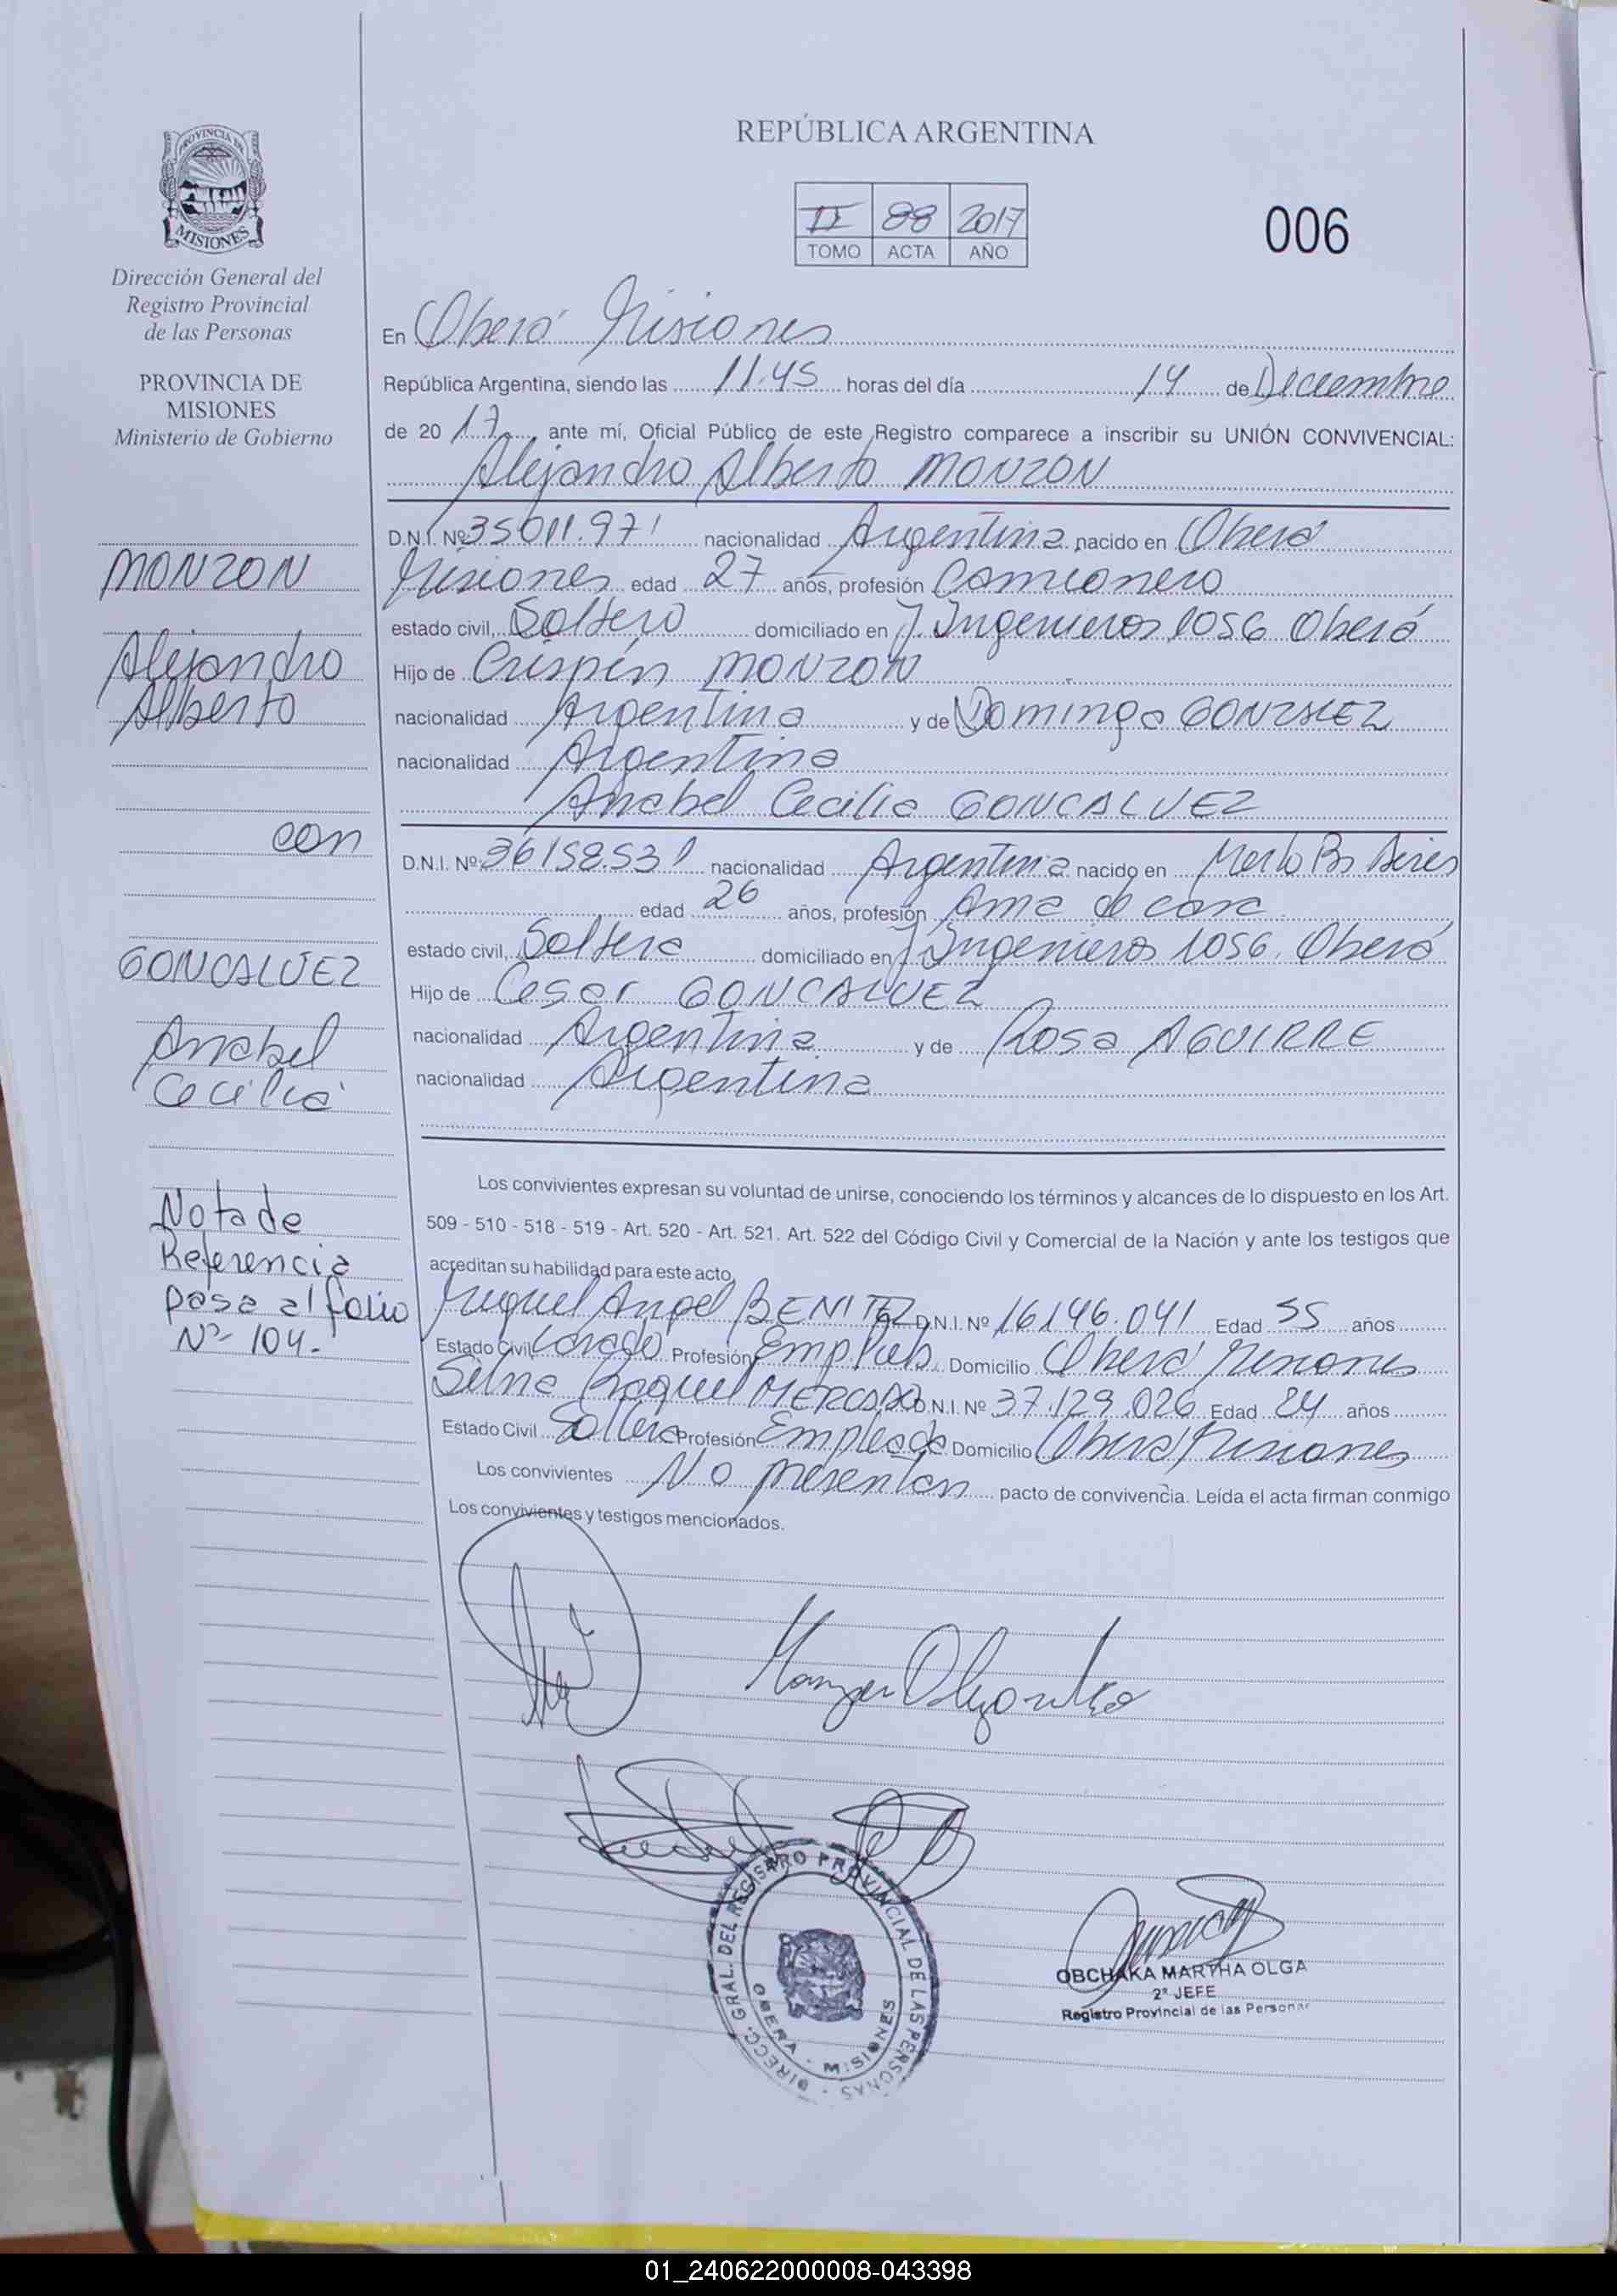 REPÚBLICA ARGENTINA
II 88 2017
TOMO ACTA AÑO
006
PROVINCIA DE
MISIONES
Dirección General del
Registro Provincial
de las Personas
PROVINCIA DE
MISIONES
Ministerio de Gobierno
MONZON
Alejandro
Alberto
con
GONCALVEZ
Anabel
Cecilia
Nota de
Referencia
pasa al folio
Nº 104.
En Oberá Misiones
República Argentina, siendo las 11:45 horas del día 14 de Diciembre
de 20 17, ante mí, Oficial Público de este Registro comparece a inscribir su UNIÓN CONVIVENCIAL:
Alejandro Alberto MONZON
D.N.I. Nº 35011.971 nacionalidad Argentina nacido en Oberá
Misiones edad 27 años, profesión Camionero
estado civil, Soltero domiciliado en J. Ingenieros 1056 Oberá
Hijo de Crispín MONZON
nacionalidad Argentina y de Dominga GONZALEZ
nacionalidad Argentina
Anabel Cecilia GONCALVEZ
D.N.I. Nº 36158.531 nacionalidad Argentina nacido en Merlo Bs Aires
edad 26 años, profesión Ama de casa
estado civil, Soltera domiciliado en J Ingenieros 1056. Oberá
Hijo de Cesar GONCALVEZ
nacionalidad Argentina y de Rosa AGUIRRE
nacionalidad Argentina
Los convivientes expresan su voluntad de unirse, conociendo los términos y alcances de lo dispuesto en los Art.
509 - 510 - 518 - 519 - Art. 520 - Art. 521. Art. 522 del Código Civil y Comercial de la Nación y ante los testigos que
acreditan su habilidad para este acto,
Miguel Angel BENITEZ D.N.I. Nº 16146.041 Edad 55 años
Estado Civil Casado Profesión Emp Pub. Domicilio Oberá Misiones
Silna Raquel MERCADO D.N.I. Nº 37.129.026 Edad 24 años
Estado Civil Soltera Profesión Empleada Domicilio Oberá Misiones
Los convivientes No presentan pacto de convivencia. Leída el acta firman conmigo
Los convivientes y testigos mencionados.
DIRECC. GRAL. DEL REGISTRO PROVINCIAL DE LAS PERSONAS
OBERA - MISIONES
OBCHAKA MARTHA OLGA
2º JEFE
Registro Provincial de las Personas
01_240622000008-043398